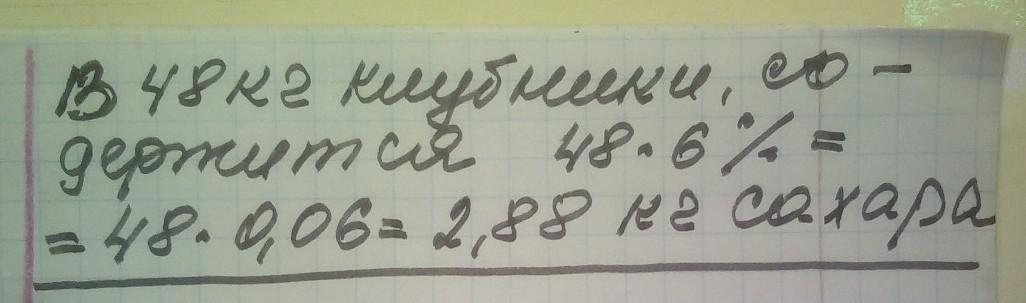 В 48 кг клубники, со-
держится 48·6%=
=48·0,06=2,88 кг сахара